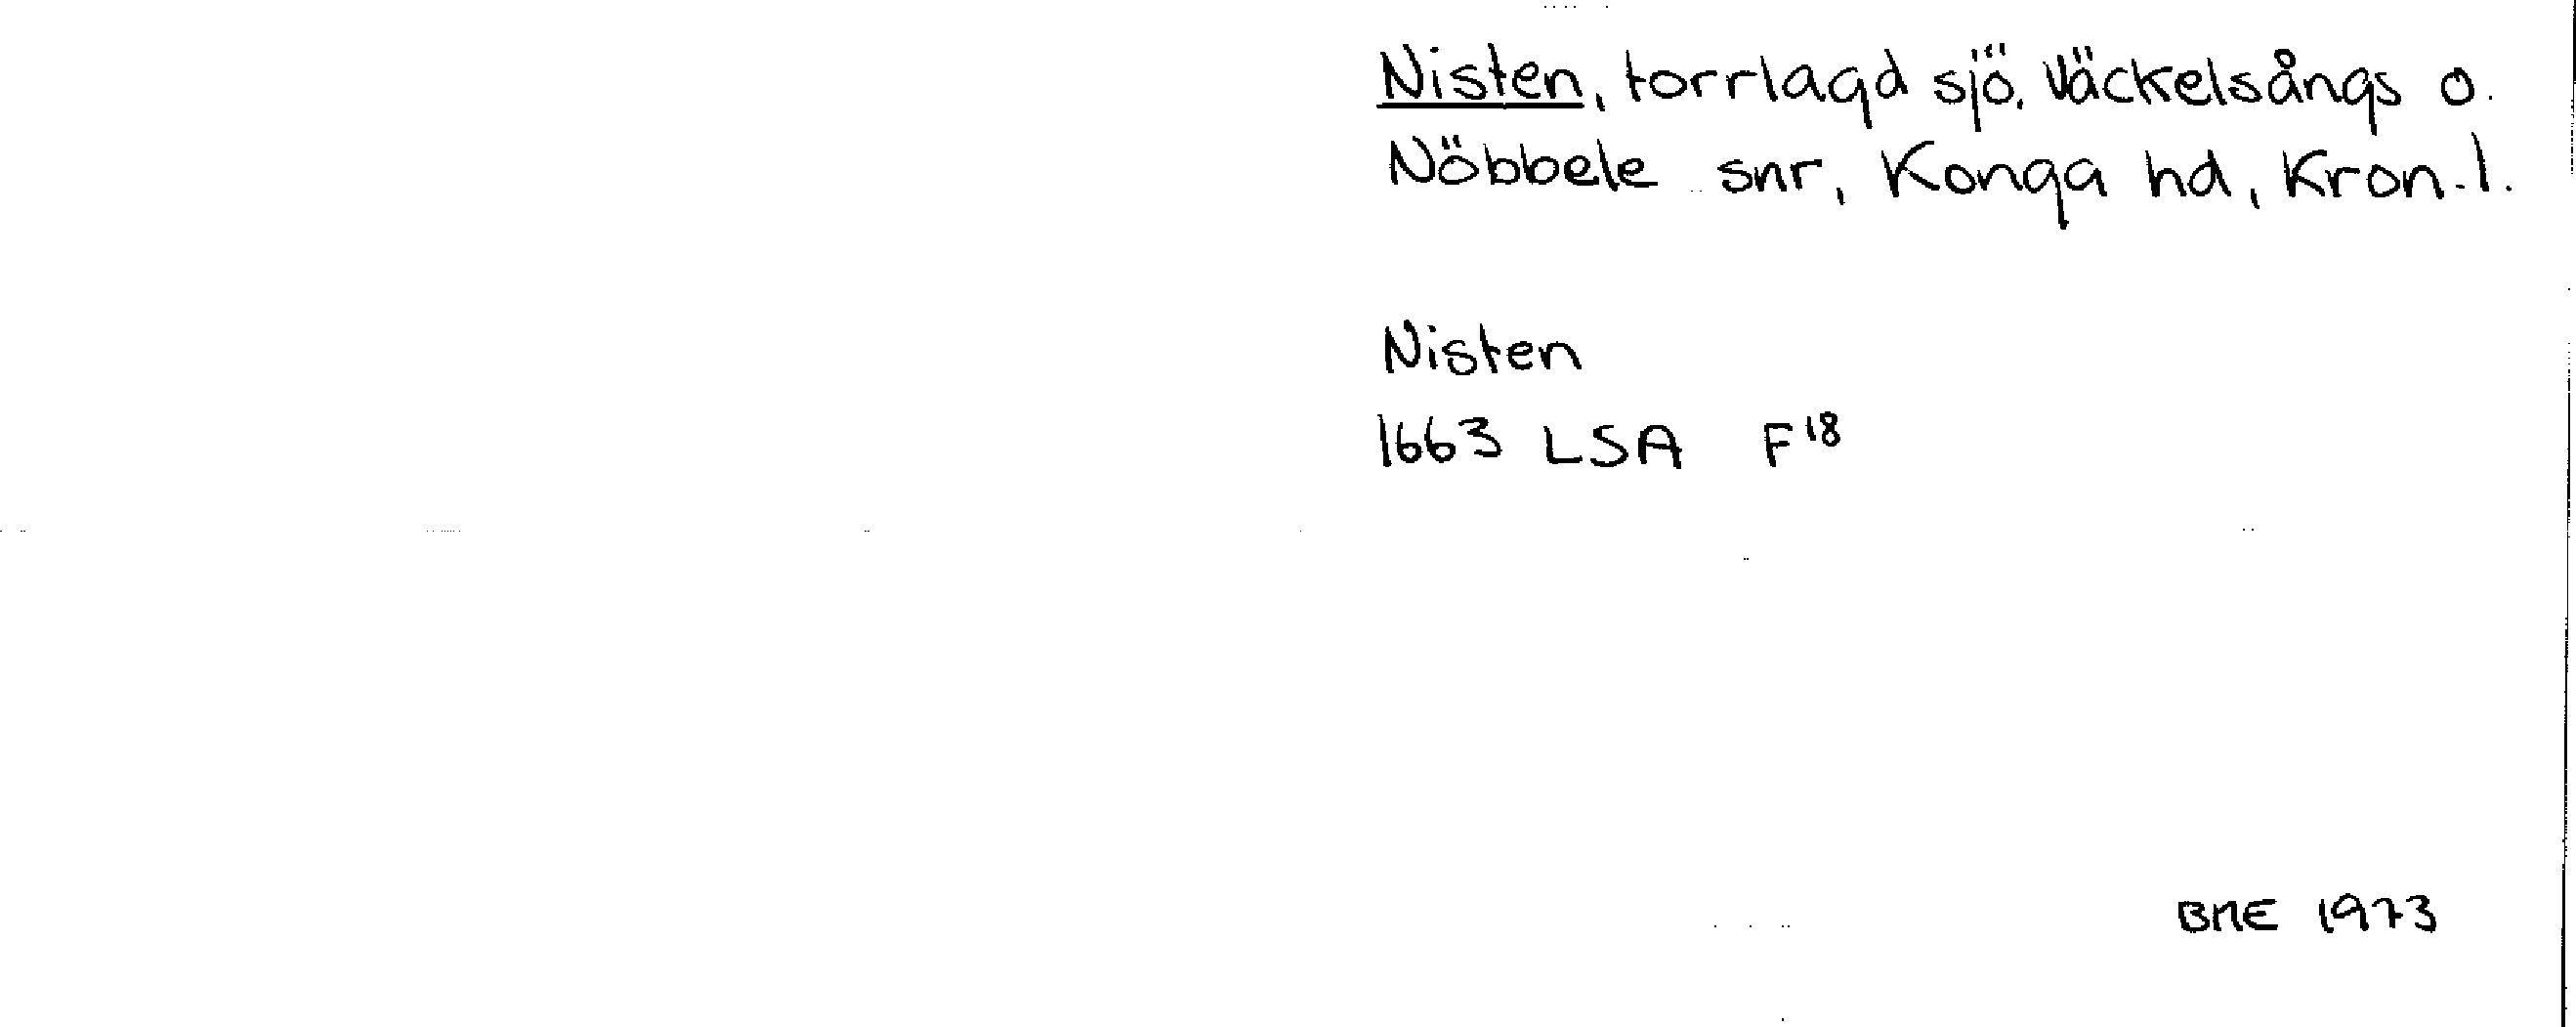 Nisten, torrlagd sjö, Väckelsångs o.
Nöbbele snr, Konga hd, Kron. l.
Nisten
1663 LSA F18
BME 1973